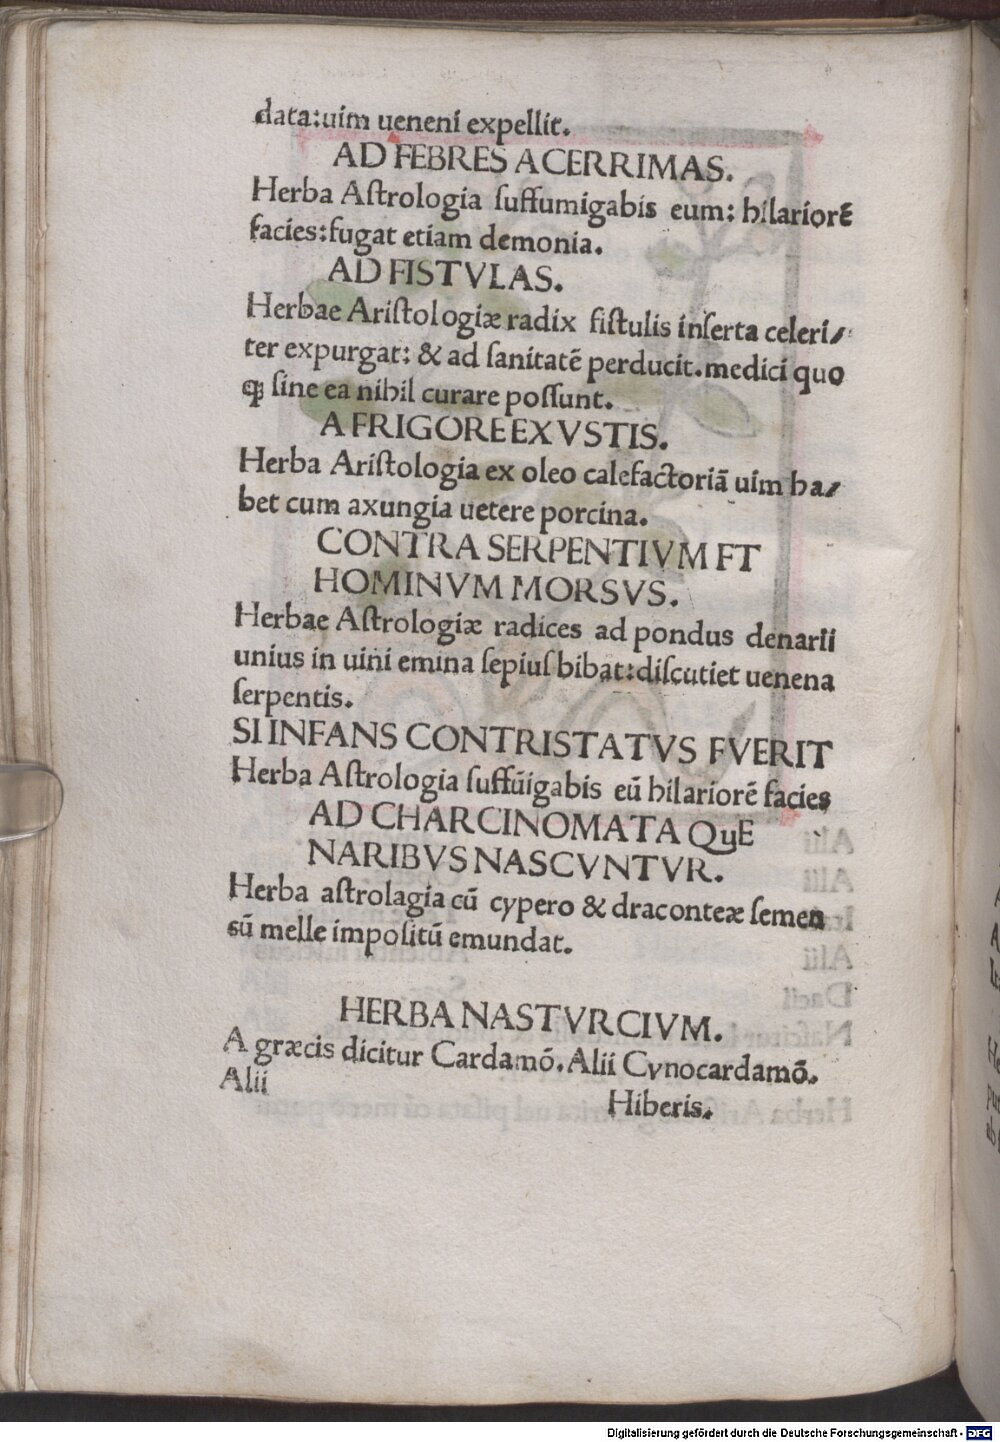 data:uim ueneni expellit.
AD FEBRES ACERRIMAS.
Herba Aſtrologia ſuffumigabis eum: hilariorē
facies:fugat etiam demonia.
AD FISTVLAS.
Herbae Ariſtologiæ radix fiſtulis inſerta celeri/
ter expurgat: & ad ſanitatē perducit.medici quo
ꝙ ſine ea nihil curare poſſunt.
A FRIGORE EXVSTIS.
Herba Ariſtologia ex oleo calefactoriā uim ha/
bet cum axungia uetere porcina.
CONTRA SERPENTIVM FT
HOMINVM MORSVS.
Herbae Aſtrologiæ radices ad pondus denarii
unius in uini emina ſepiuſ bibat:diſcutiet uenena
ſerpentis.
SI INFANS CONTRISTATVS FVERIT
Herba Aſtrologia ſuffūigabis eū hilariorē facies
AD CHARCINOMATA QuE
NARIBVS NASCVNTVR.
Herba aſtrolagia cū cypero & draconteæ ſemen
sū melle impoſitū emundat.
HERBA NASTVRCIVM.
A græcis dicitur Cardamō. Alii Cynocardamō.
Alii Hiberis.
Digitalisierung gefördert durch die Deutsche Forschungsgemeinschaft - DFG